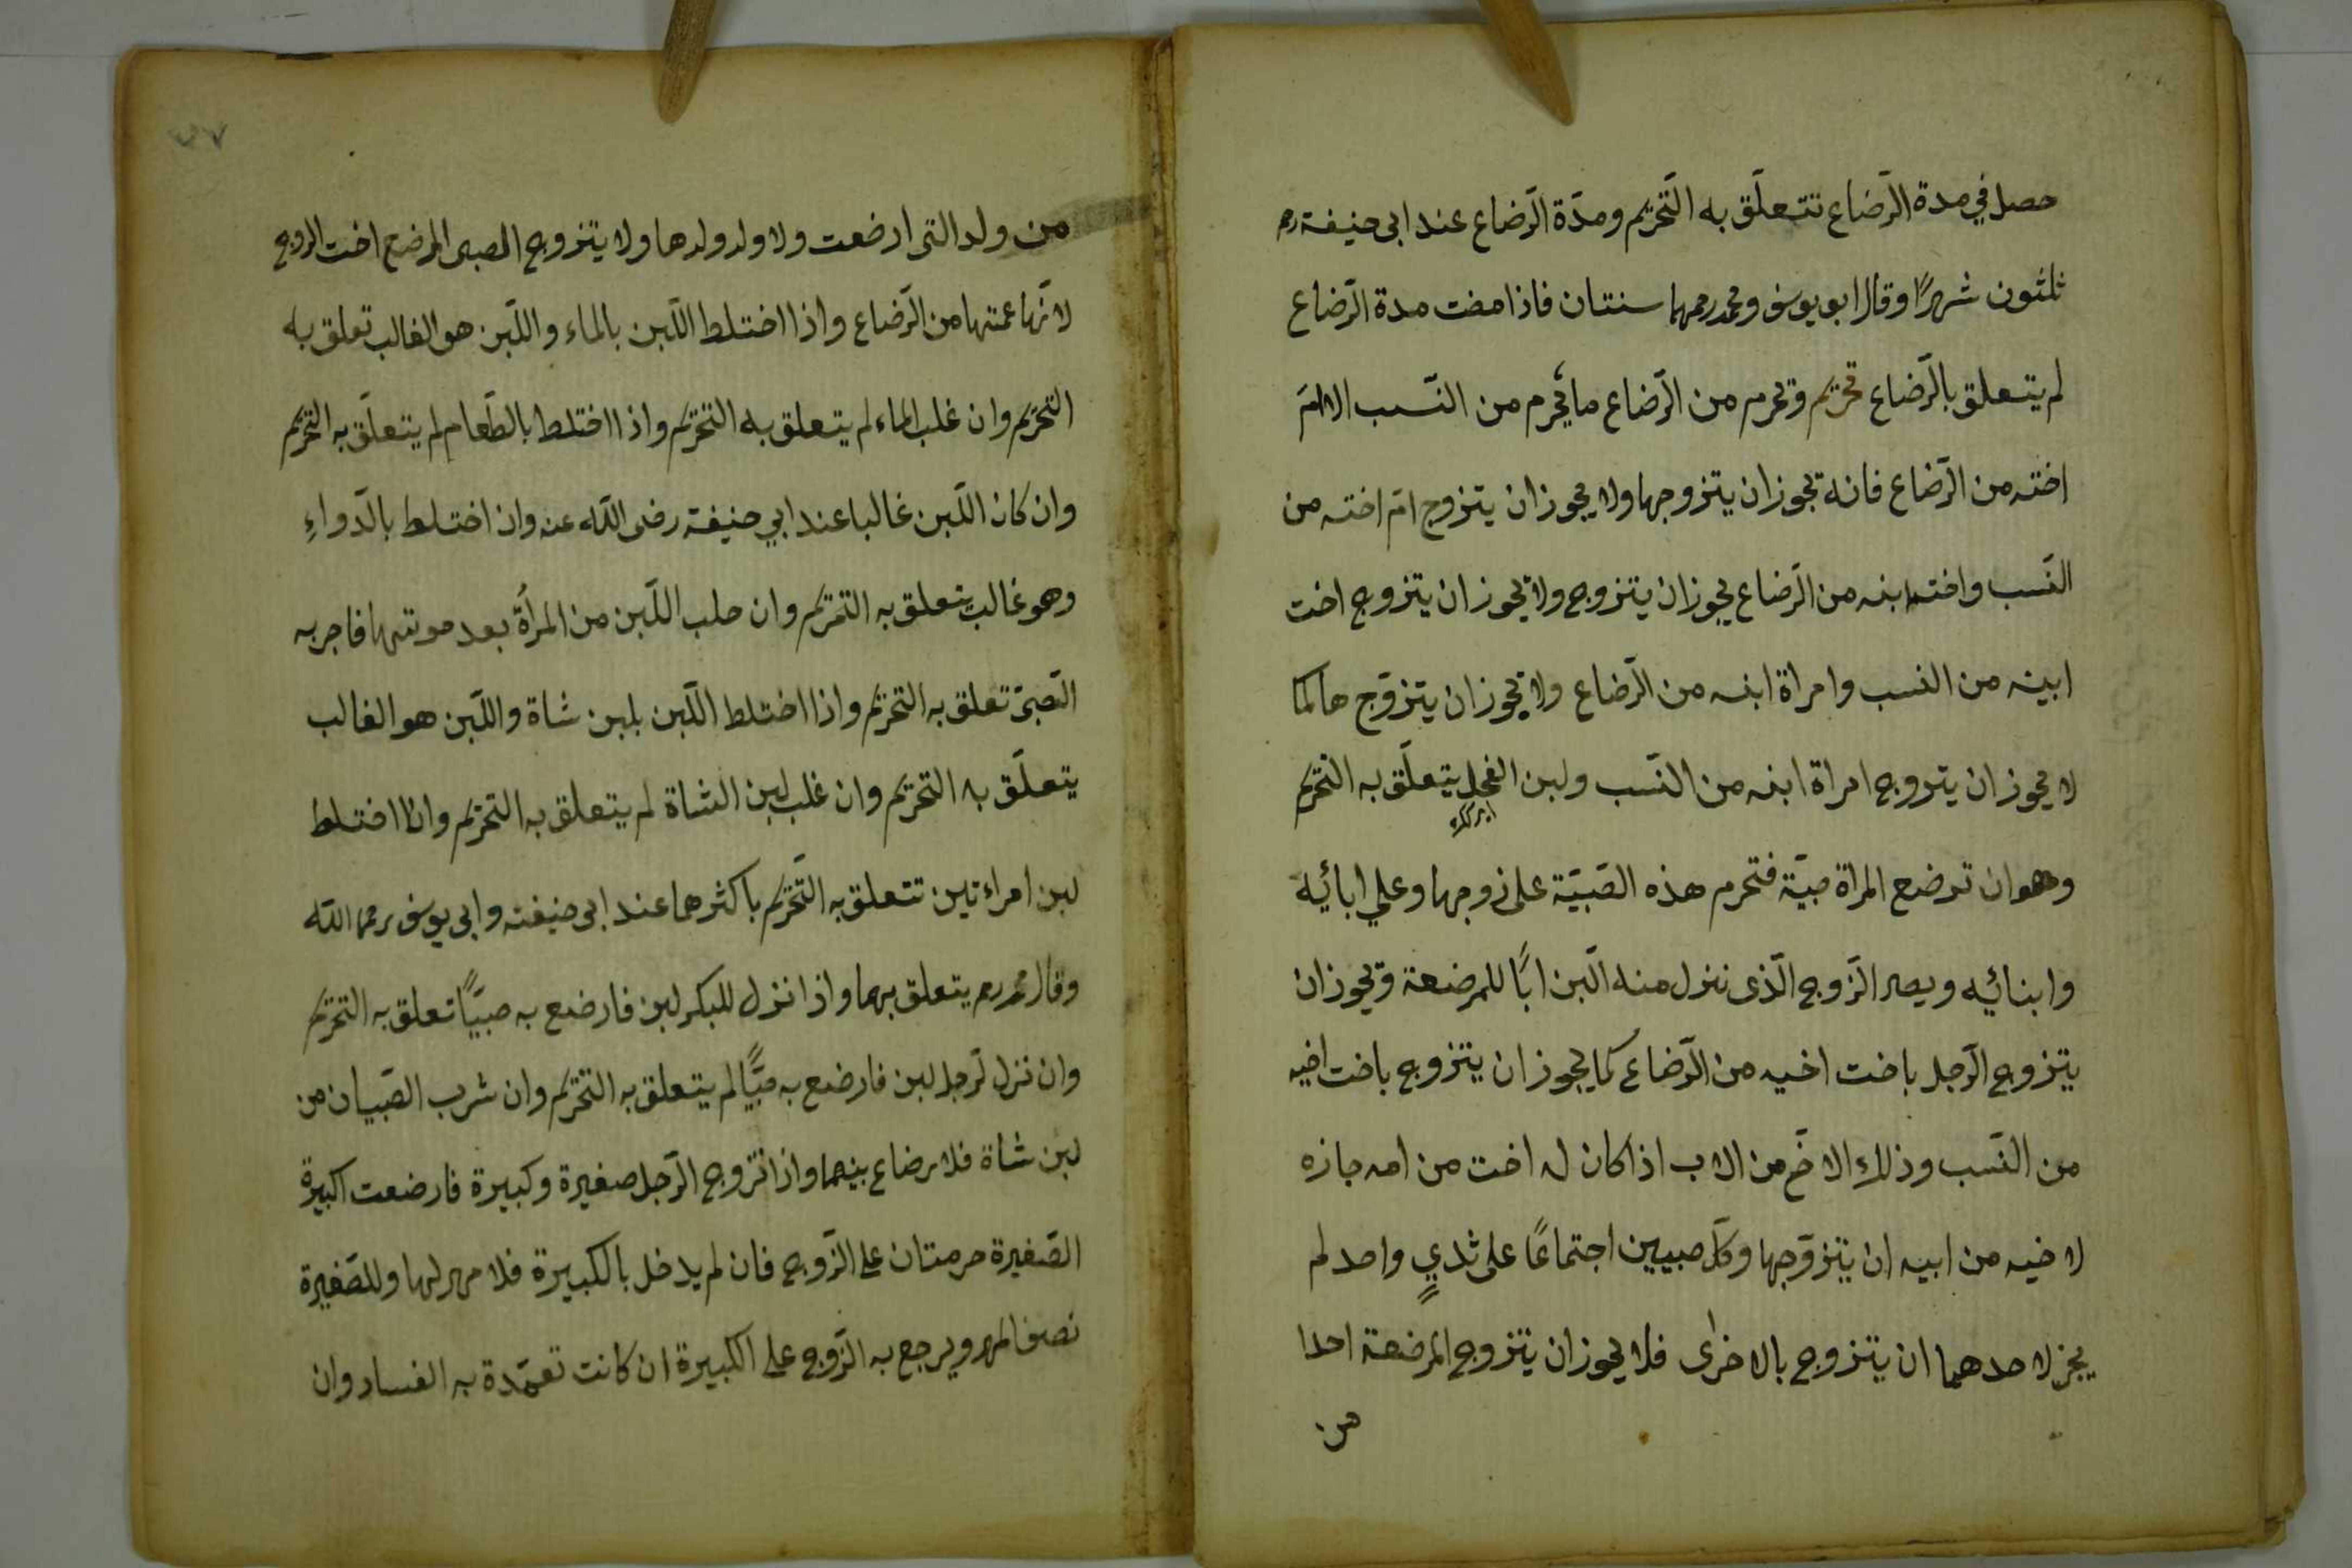 حصل في مدة الرّضاع تتعلّق به التّحريم ومدّة الرّضاع عند ابى حنيفة رحمه
ثلثون شهرًا وقال ابو يوسف ومحمد رحمهما سنتان فاذا مضت مدة الرّضاع
لم يتعلق بالرّضاع تحريم وتحرم من الرّضاع ما يحرم من النّسب الا امّ
اخته من الرّضاع فانه تجوز ان يتزوجها ولا يجوز ان يتزوج امّ اخته من
النّسب واخت ابنه من الرّضاع يجوز ان يتزوج ولا يجوز ان يتزوج اخت
ابينه من النسب وامراة ابنه من الرّضاع ولا يجوز ان يتزوّج ها كما
لا يجوز ان يتزوج امراة ابنه من النّسب ولبن الفحل يتعلّق به التحريم
وهو ان ترضع المراة صبيّة فتحرم هذه الصّبيّة على زوجها وعلي ابائيه
وابنائيه ويصير الزّوج الّذى نزل منه الّبن ابًا للمرضعة وتجوز ان
يتزوج الرّجل باخت اخيه من الرّضاع كما يجوز ان يتزوج باخت اخيه
من النّسب وذلك الاخّ من الاب اذا كان له اخت من امه جازه
لاخيه من ابيه ان يتزوّجها وكلّ صبيين اجتماعًا على ثديٍ واحد لم
يجز لاحدهما ان يتزوج بالاخرٰى فلا يجوز ان يتزوج المرضعة احدا
من
٣٧
من ولد التى ارضعت ولا ولد ولدها ولا يتزوج الصبى المرضع اخت الزوج
لانّها عمتها من الرّضاع واذا اختلط اللّبن بالماء واللّبن هو الغالب تعلق به
التحريم وان غلب الماء لم يتعلق به التحريم واذا اختلط بالطّعام لم يتعلّق به التحريم
وان كان اللّبن غالبا عند ابي حنيفة رضى اللّه عنه وان اختلط بالدّواءِ
وهو غالب يتعلق به التحريم وان حلب اللّبن من المرأة بعد موتتها فاجر به
الصّبىّ تعلق به التحريم واذا اختلط اللّبن بلبن شاة واللّبن هو الغالب
يتعلّق به التحريم وان غلب لبن الشاة لم يتعلق به التحريم واذا اختلط
لبن امراءتين تتعلق به التّحريم باكثرهما عند ابى حنيفة وابى يوسف رحمهما اللّه
وقال محمد رحمه يتعلق بهما واذا نزل للبكر لبن فارضع به صبيًّا تعلق به التحريم
وان نزل لرّجل لبن فارضع به صبيًّا لم يتعلق به التحريم وان شرب الصّبيان من
لبن شاة فلا رضاع بينهما واذا تزوج الرّجل صغيرة وكبيرة فارضعت اكبيرة
الصّغيرة حرمتان على الزّوج فان لم يدخل بالكبيرة فلا مهر لها وللصّغيرة
نصف المهر ويرجع به الزّوج على الكبيرة ان كانت تعمّدة به الفساد وان